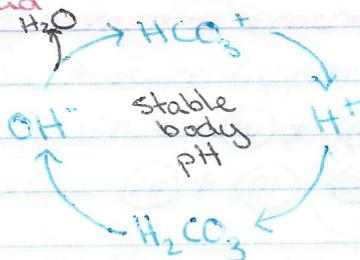 H₂O
HCO₃⁺
OH⁻
stable
body
pH
H⁺
H₂CO₃